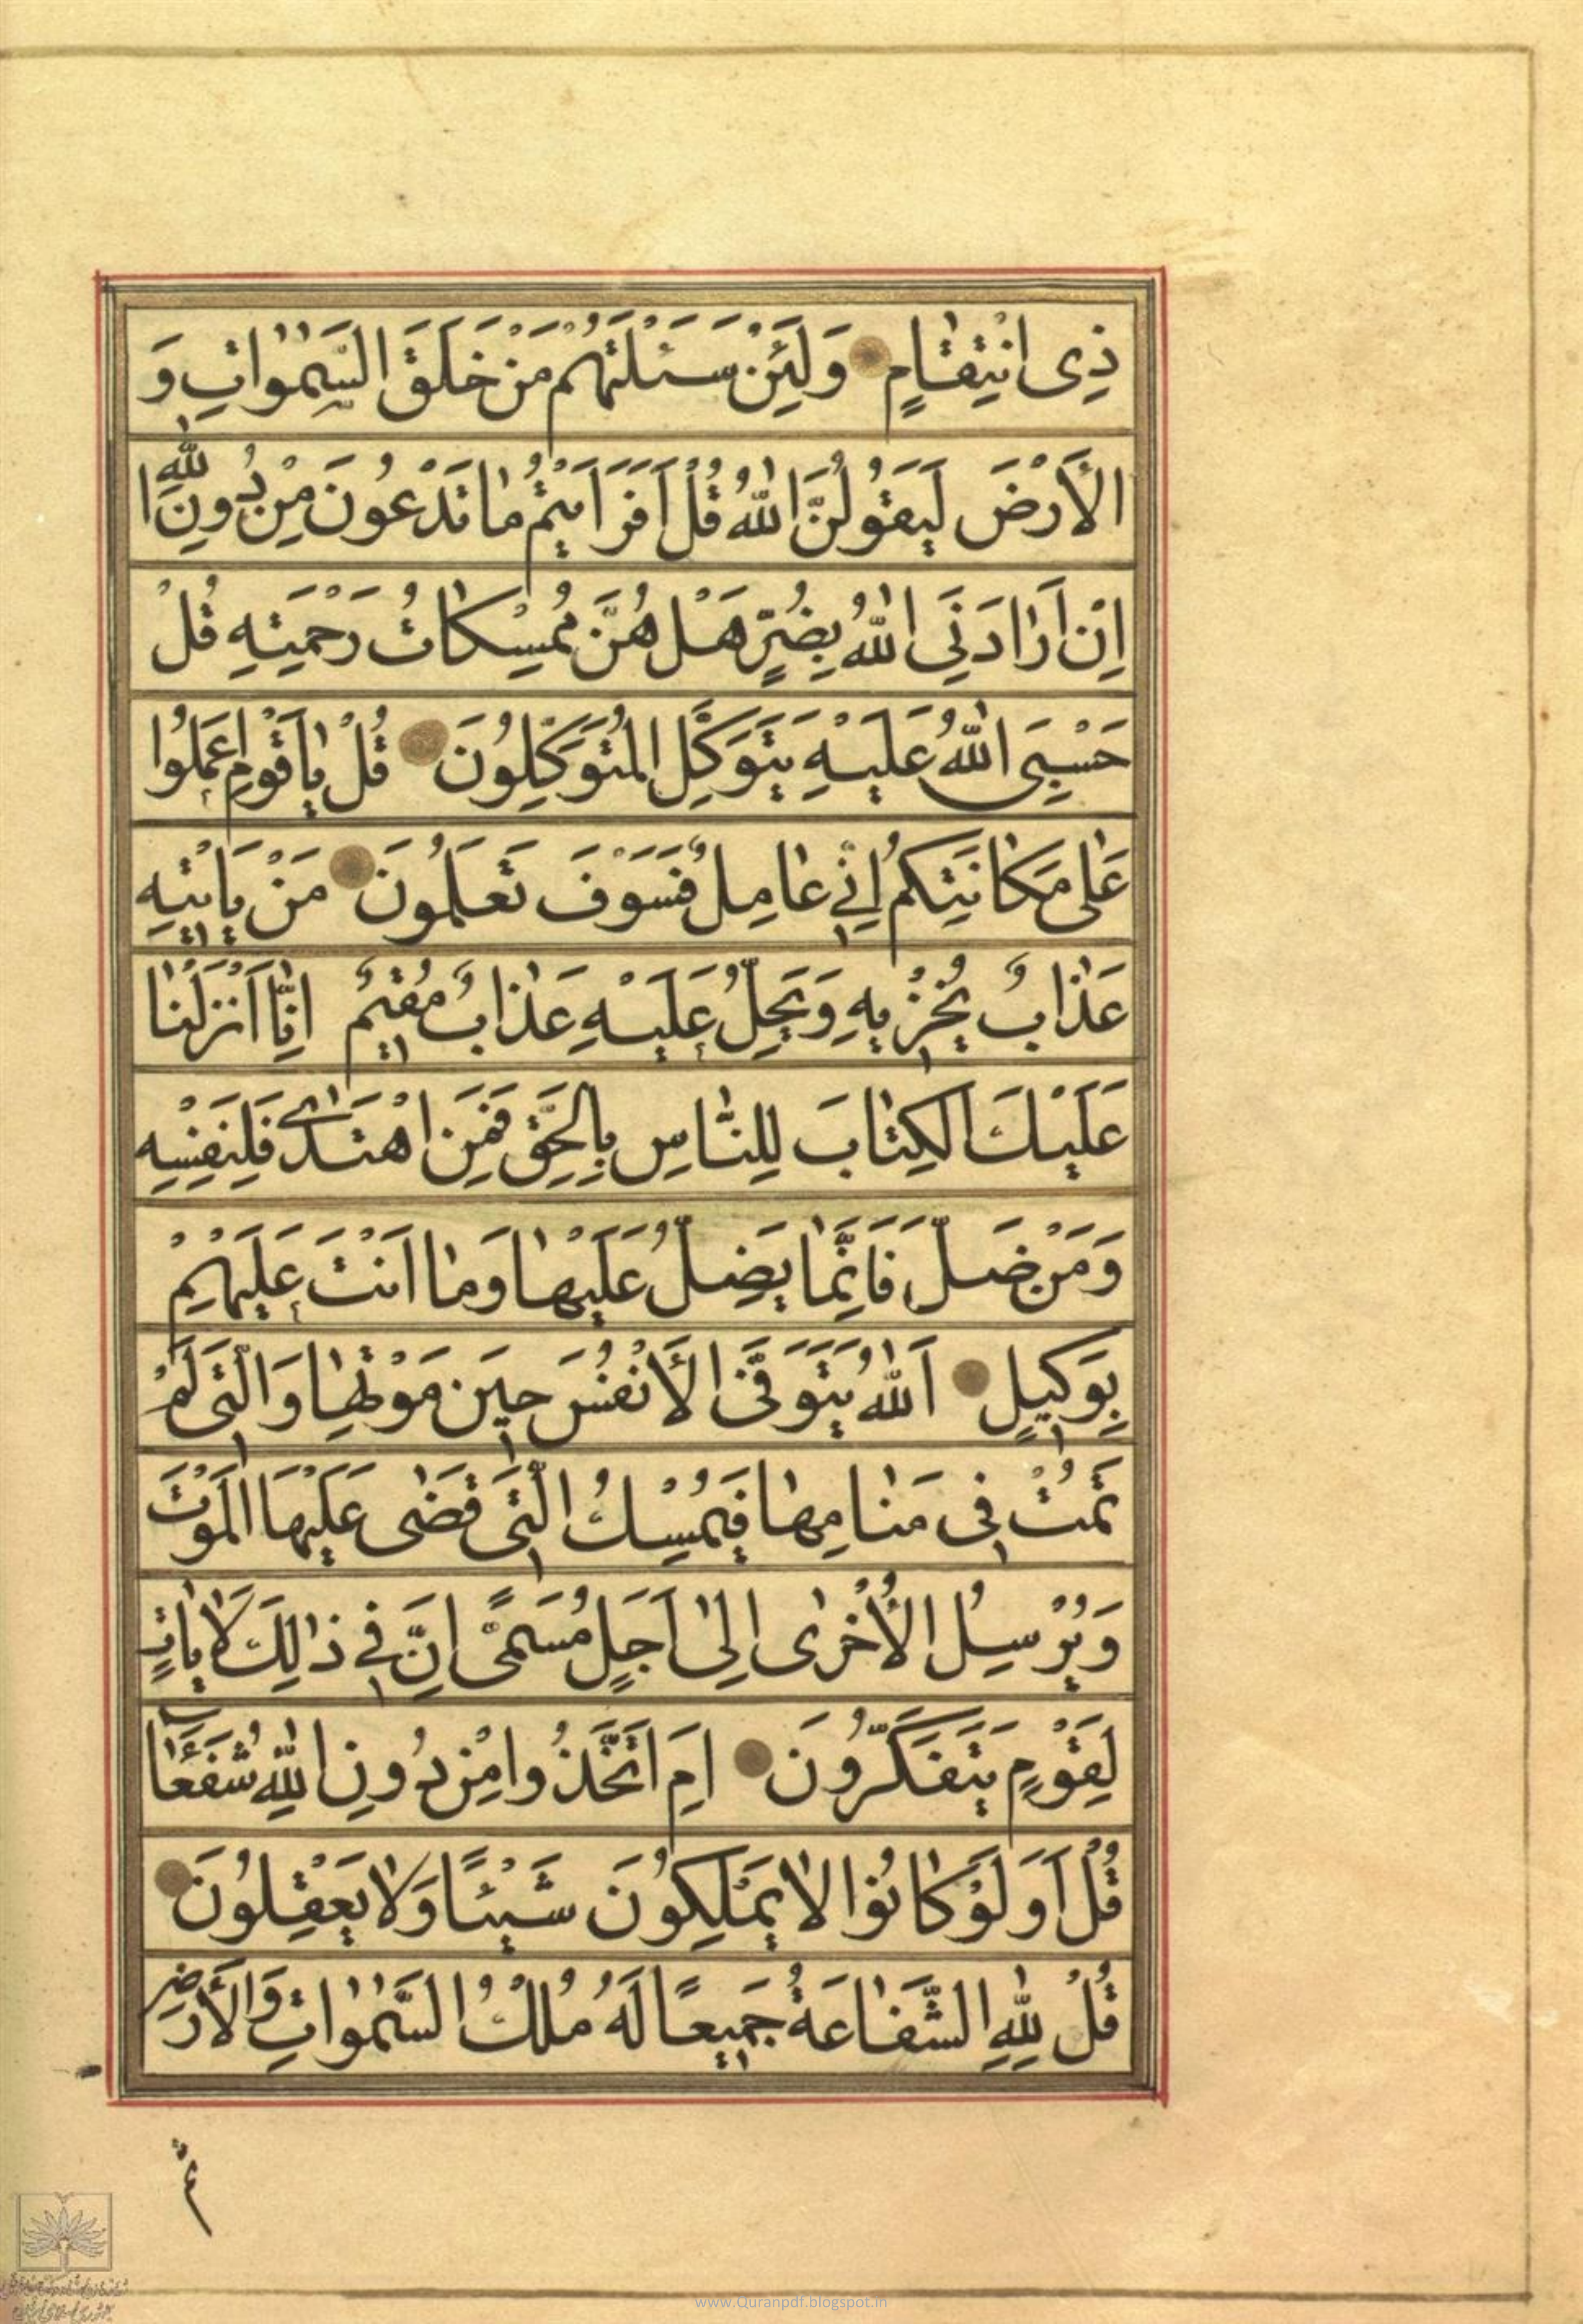 ذِی انْتِقٰامٍ وَلَئِنْ سَئَلْتَهُمْ مَنْ خَلَقَ السَّمٰوٰاتِ وَ
الْأَرْضَ لَيَقُولُنَّ اللّٰهُ قُلْ اَفَرَاَيْتُمْ مٰا تَدْعُونَ مِنْ دُونِ اللّٰهِ
اِنْ اَرٰادَنِیَ اللّٰهُ بِضُرٍّ هَلْ هُنَّ مُمْسِكٰاتُ رَحْمَتِهِ قُلْ
حَسْبِیَ اللّٰهُ عَلَيْهِ يَتَوَكَّلُ الْمُتَوَكِّلُونَ قُلْ يٰا قَوْمِ اعْمَلُوا
عَلٰی مَكٰانَتِكُمْ اِنّٖی عٰامِلٌ فَسَوْفَ تَعْلَمُونَ مَنْ يَاْتٖيهِ
عَذٰابٌ يُخْزٖيهِ وَيَحِلُّ عَلَيْهِ عَذٰابٌ مُقٖيمٌ اِنّٰا اَنْزَلْنٰا
عَلَيْكَ الْكِتٰابَ لِلنّٰاسِ بِالْحَقِّ فَمَنِ اهْتَدٰی فَلِنَفْسِهِ
وَمَنْ ضَلَّ فَاِنَّمٰا يَضِلُّ عَلَيْهٰا وَمٰا اَنْتَ عَلَيْهِمْ
بِوَكٖيلٍ اَللّٰهُ يَتَوَفَّی الْأَنْفُسَ حٖينَ مَوْتِهٰا وَالَّتٖی لَمْ
تَمُتْ فٖی مَنٰامِهٰا فَيُمْسِكُ الَّتٖی قَضٰی عَلَيْهَا الْمَوْتَ
وَيُرْسِلُ الْأُخْرٰی اِلٰی اَجَلٍ مُسَمًّی اِنَّ فٖی ذٰلِكَ لَاٰيٰاتٍ
لِقَوْمٍ يَتَفَكَّرُونَ اَمِ اتَّخَذُوا مِنْ دُونِ اللّٰهِ شُفَعٰاءَ
قُلْ اَوَلَوْ كٰانُوا لٰا يَمْلِكُونَ شَيْئًا وَلٰا يَعْقِلُونَ
قُلْ لِلّٰهِ الشَّفٰاعَةُ جَمٖيعًا لَهُ مُلْكُ السَّمٰوٰاتِ وَالْأَرْضِ
ثُمَّ
www.Quranpdf.blogspot.in